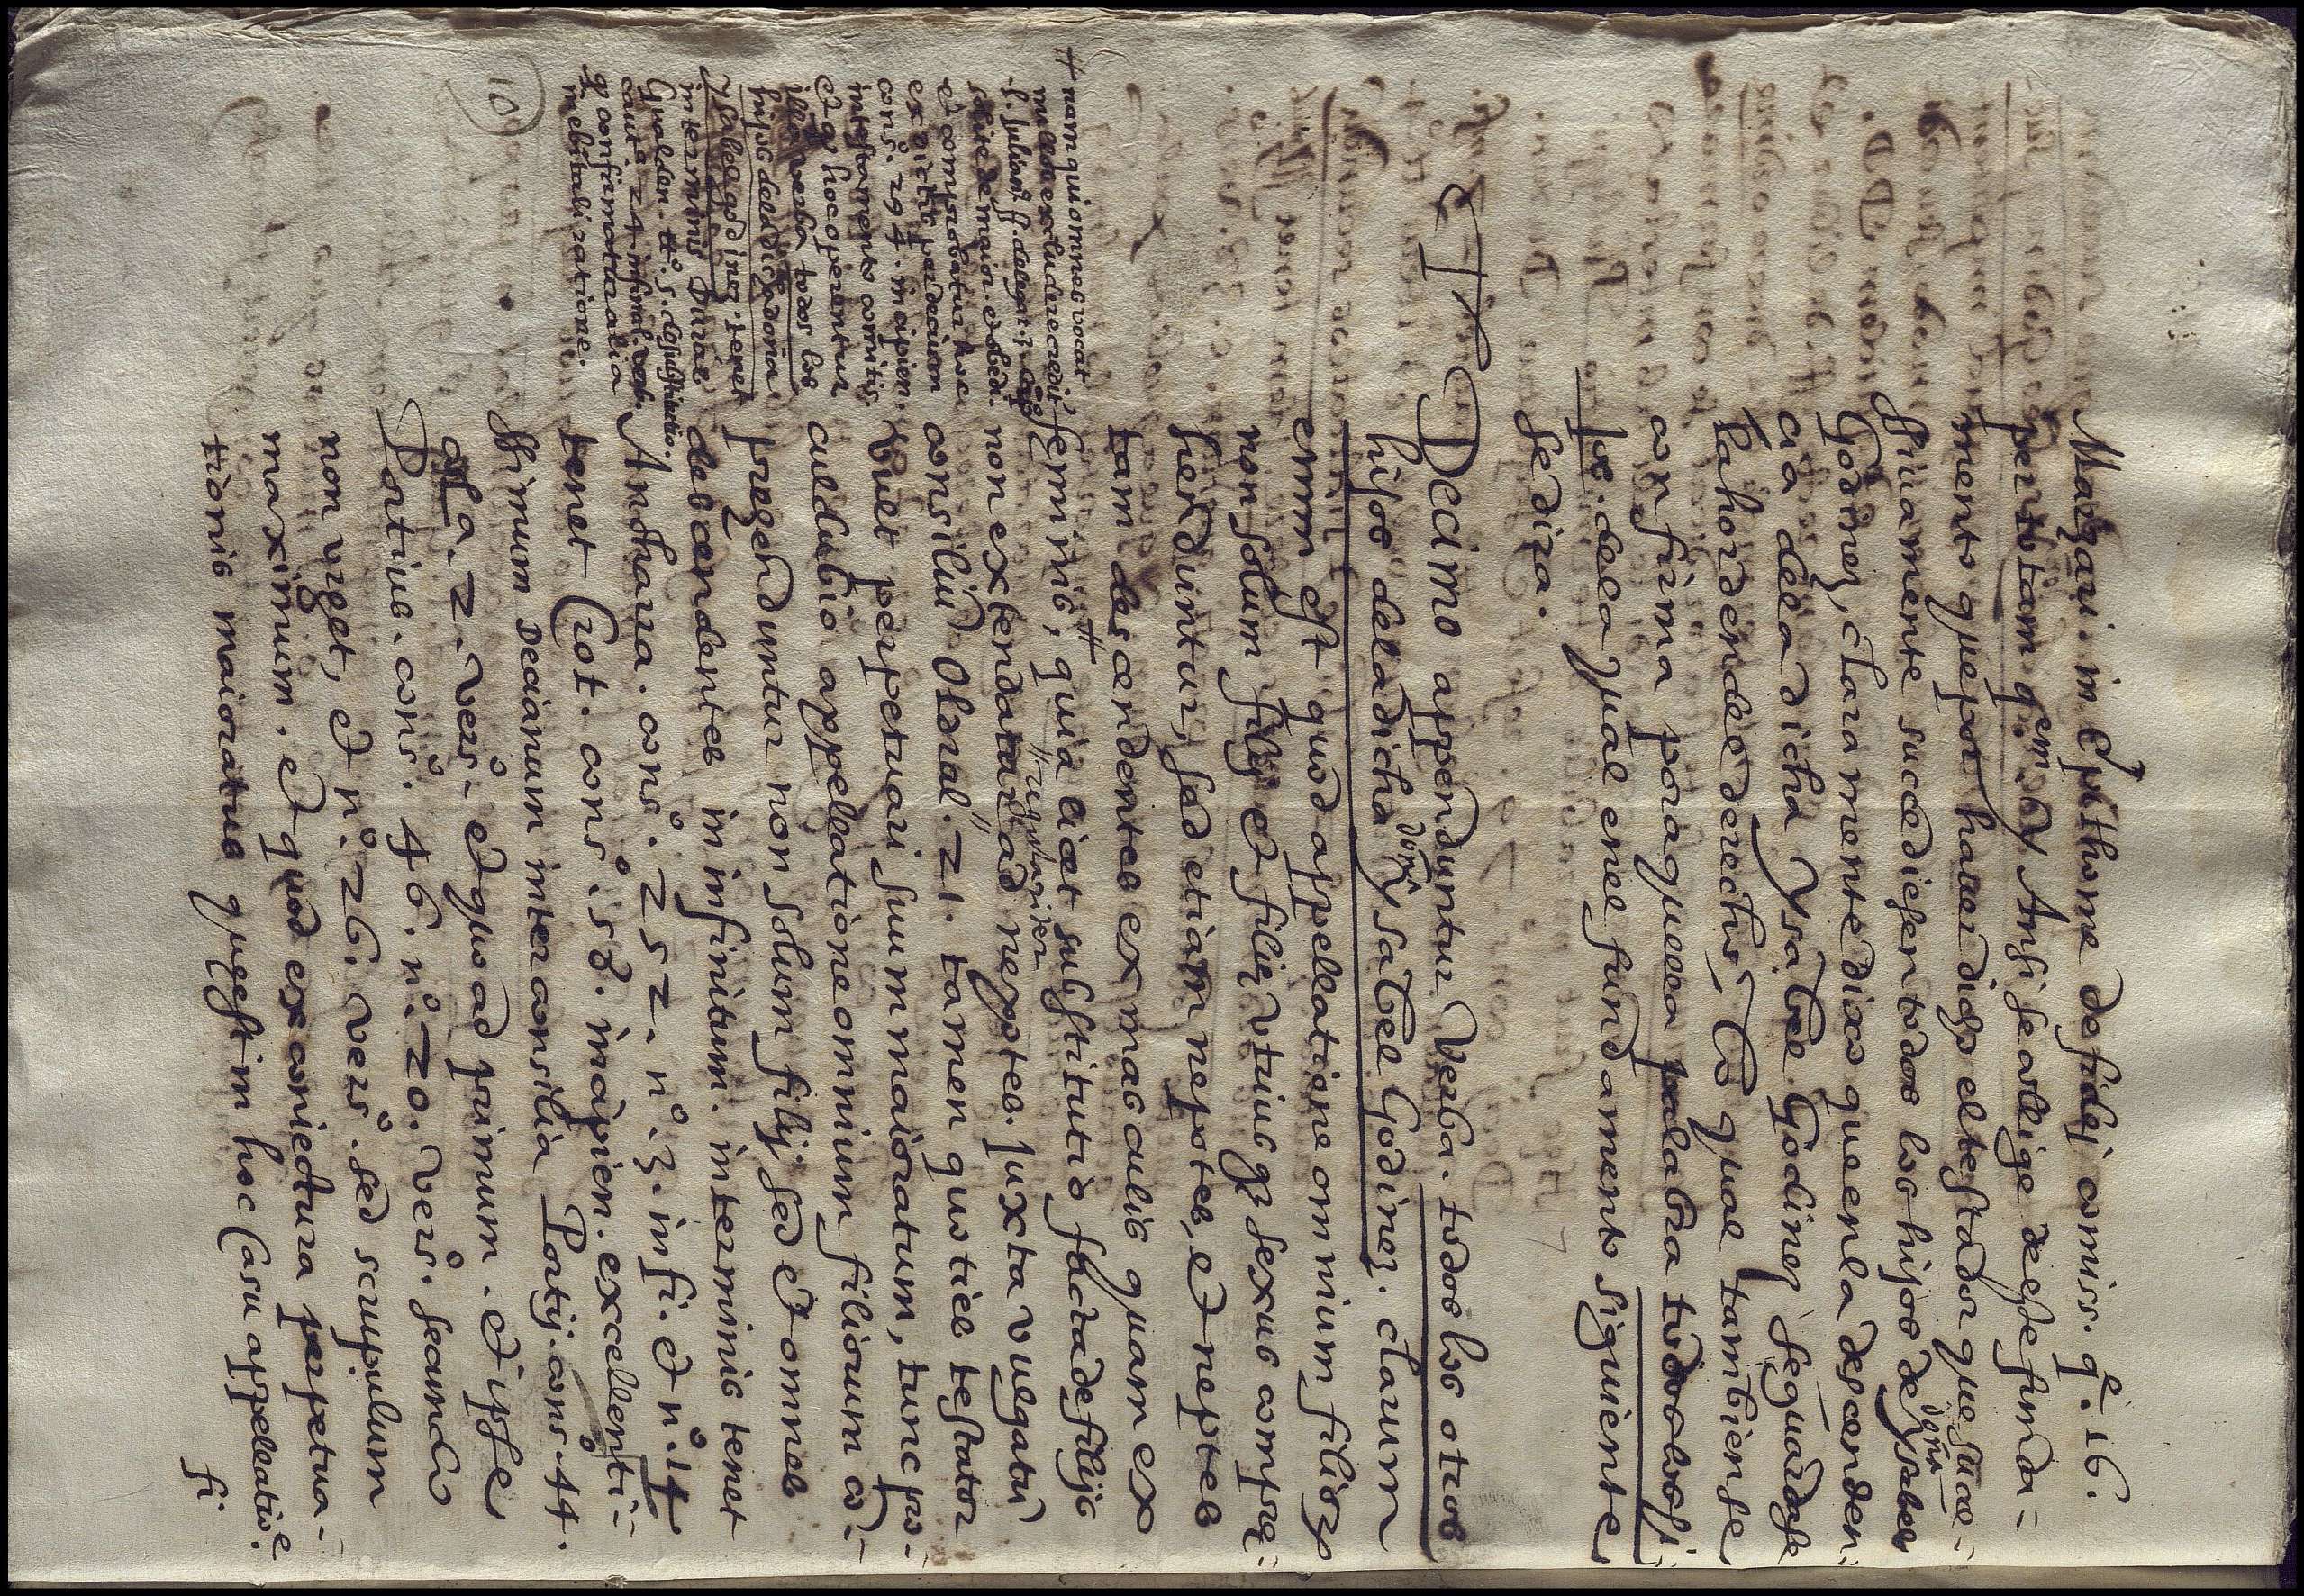 Marzari. in Epithome de fidej comiss. q.e 16.
per totam q.em. Y Ansi se collige de esse funda=
mento que por hauer dicho el testador que suce=
siuamente sucediesen todos los hijos de doña Ysabel
Godinez, claramente dixo que en la descenden=
cia dela dicha Ysabel Godinez se guardase
la horden del derecho, Lo qual tambien se
confirma por aquella palabra todos los hi
jos. dela qual en el fundamento siguiente
se dira.
Decimo appenduntur Verba. todos los otros
hijos dela dicha doña Ysabel Godinez. clarum
enim est quod appellatione omnium filiorum
non solum filij et filiae vtriusque sexus compre=
henduntur, sed etiam nepotes, et neptes
tam descendentes ex masculis quam ex
feminis, # quia licet substitutio facta de filijs
non extendatur ad nepotes. Juxta vulgatum "regulariter
consilium Oldrad." 21. tamen quoties testator
vult perpetuari suum maioratum, tunc pro=
culdubio appellatione omnium filiorum co=
prehenduntur non solum filij sed et omnes
descendentes in infinitum. in terminis tenet
Ancharra. cons.o 252. n.o 3. in fi. et n.o 14
tenet Crot. cons.o 158. in cipien. excellenti=
ssimum Decianum inter consilia Portij. cons.o 44.
colla. 2. vers.o et quo ad primum. et ipse
Portius. cons.o 46. n.o 20. vers.o secundo
non vrget, et n.o 26. vers.o sed scrupulum
maximum. et quod ex coniectura perpetua=
tionis maioratus que est in hoc Casu appellatione
fi
# nam qui omnes vocat
nullos excludere credit,
l. Julianus ff. de legat. 3.
solite de maior. et obed.
et comprobatur hoc
ex dictis per Decium
cons.o 294. incipien.
in testamento comitis.
et quod hoc operentur
illa verba todos los
hijos dela dicha doña
Ysabel godinez. tenet
in terminis Duran
Gualder. tt.o 5. de substitutio.
cauta 24 in final. verb.
quod confirmatur alia
mebitabili ratione.
10